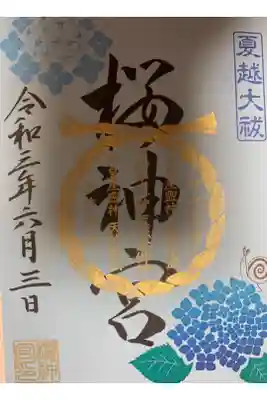 夏越大祓
桜神宮
令和三年六月三日